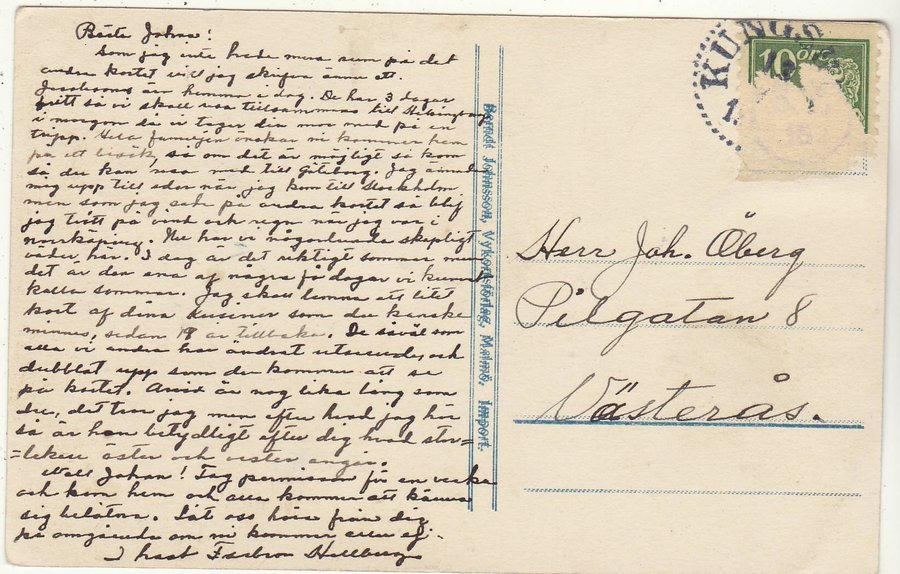 Bäste Johan!
Som jag inte hade mera rum på det
andra kortet vill jag skrifva ännu ett.
Jacobsons är hemma i dag. De har 3 dagar
fritt så vi skall resa tillsammans till Helsingborg
i morgon så vi tager din mor med på en
tripp. Hela familjen önskar ni kommer hem
på ett besök, så om det är möjligt så kom
så du kan resa med till Göteborg. Jag ämnade
mig upp till eder när jag kom till Stockholm
men som jag sade på andra kortet så blef
jag trött på vind och regn när jag var i
Norrköping. Nu har vi någorlunda skapligt
väder här. I dag är det riktigt sommar men
det är den ena af några få dagar vi kunnat
kalla sommar. Jag skall lemna ett litet
kort af dina kusiner som du kanske
minnes, sedan 19 år tillbaka. De såväl som
alla vi andra har ändrat utseende, och
dubblat upp som du kommer att se
på kortet. Arvid är nog lika lång som
du, det tror jag men efter hvad jag hör
så är han betydligt efter dig hvad stor=
=leken öster och vester angår.
Well Johan! Tag permission för en vecka
och kom hem och alla kommer att känna
sig belåtna. Låt oss höra från dig
på omgående om ni kommer eller ej.
I hast Hallberg
Berndt Johnsson, Vykortsförlag, Malmö. Import.
KUNG
10 ÖRE
15
Herr Joh. Öberg
Pilgatan 8
Västerås.